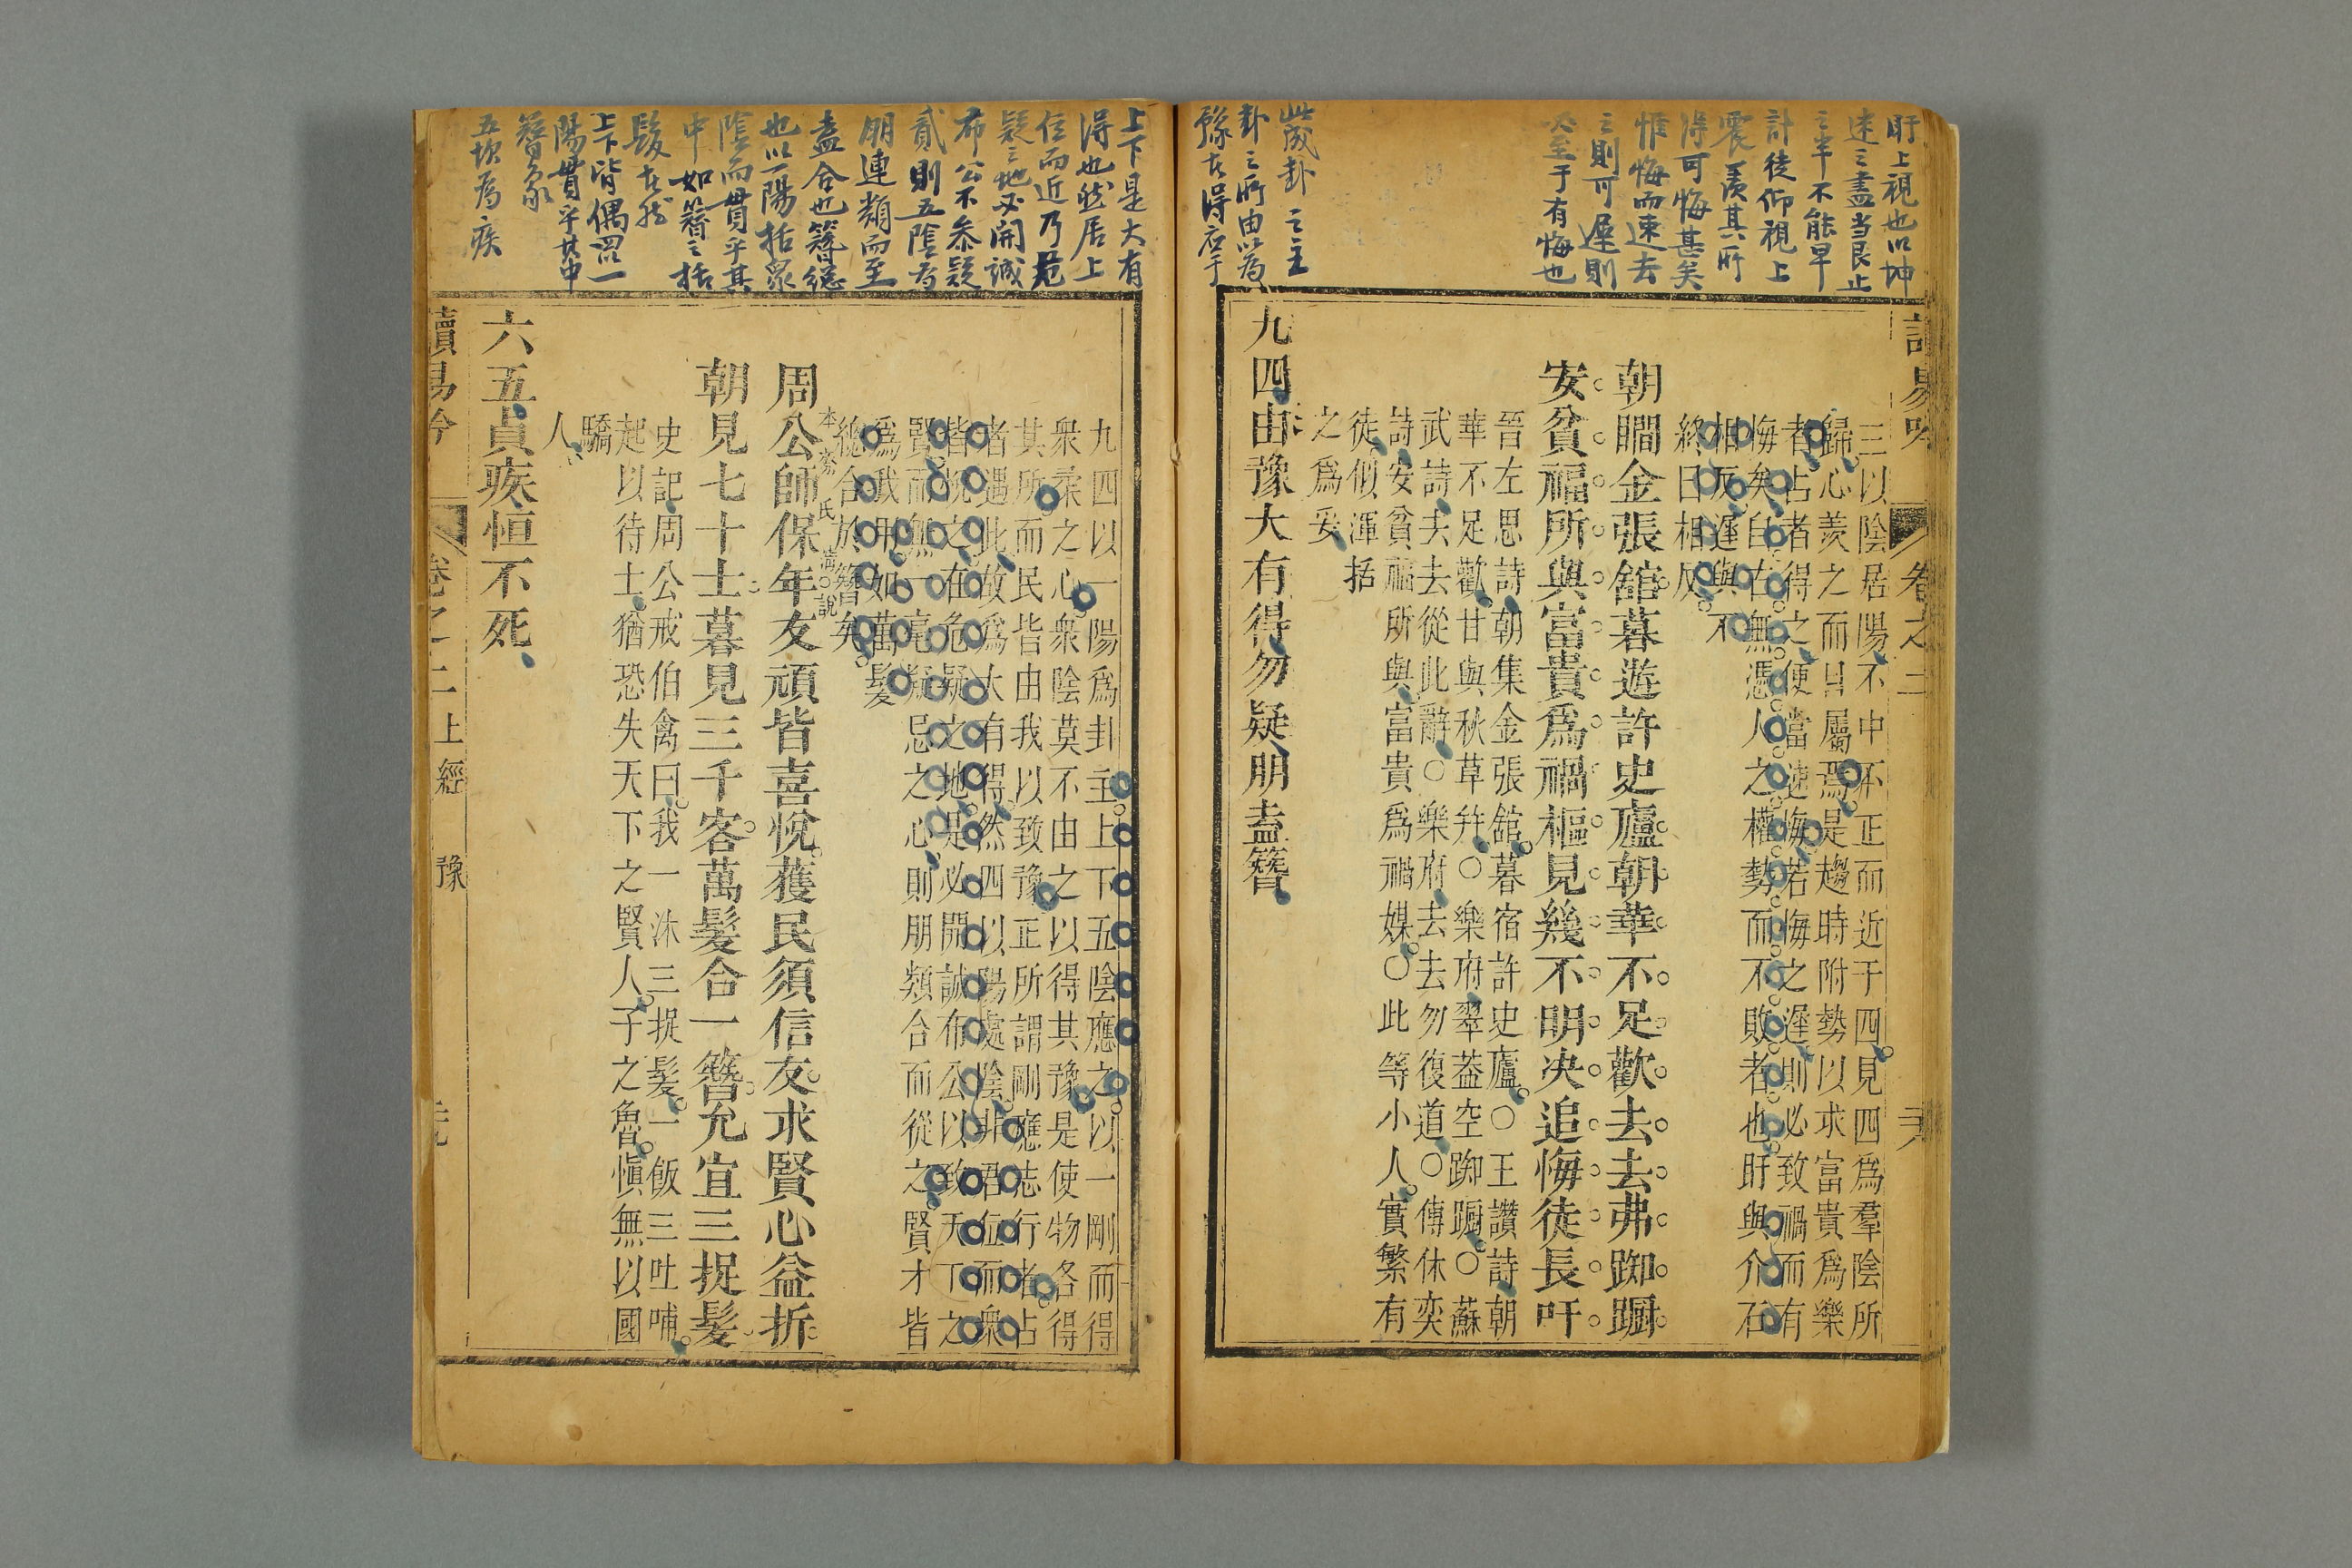 盱上視也以坤
速之盡当艮止
之半不能早
計徒仰視上
震羨其所
得可悔甚矣
惟悔而速去
之則可遲則
必至于有悔也
此成卦之主
卦之所由以為
豫者得應于
易吟
卷之二
三以陰居陽不中不正而近于四見四爲羣陰所
歸心羨之而目屬焉是趨時附勢以求富貴爲樂
者占者得之便當速悔若悔之遲則必致禍而有
悔矣自古無憑人之權勢而不敗者也盱與介石
相反遲與不
終日相反
朝瞯金張舘暮遊許史廬朝華不足歡去去弗踟蹰
安貧福所與富貴爲禍樞見幾不明决追悔徒長吁
晉左思詩朝集金張舘暮宿許史廬○王讚詩朝
華不足歡甘與秋草幷○樂府翠葢空踟蹰○蘇
武詩去去從此辭○樂府去去勿復道○傅休奕
詩安貧福所與富貴爲禍媒○此等小人實繁有
徒似渾括
之爲妥
九四由豫大有得勿疑朋盍簪
上下是大有
得也然居上
位而近乃危
疑之地必開誠
布公不叅疑
貳則五陰為
朋連類而至
盍合也簪總
也以一陽括衆
陰而貫乎其
中如簪之括
髮者然
上下皆偶畫一
陽貫乎其中
簪象
五坎為疾
九四以一陽爲卦主上下五陰應之以一剛而得
衆柔之心衆陰莫不由之以得其豫是使物各得
其所而民皆由我以致豫正所謂剛應志行者占
者遇此故爲大有得然四以陽處陰非君位而衆
皆悅之在危疑之地是必開誠布公以致天下之
賢而無一毫疑忌之心則朋類合而從之賢才皆
爲我用如萬髮
總合於簪矣
本來氏講○說
周公師保年友頑皆喜悅獲民須信友求賢心益折
朝見七十士暮見三千客萬髮合一簪允宜三捉髮
史記周公戒伯禽曰我一沐三捉髮一飯三吐哺
起以待士猶恐失天下之賢人子之魯愼無以國
驕
人
六五貞疾恒不死
讀易吟
卷之二上經 豫